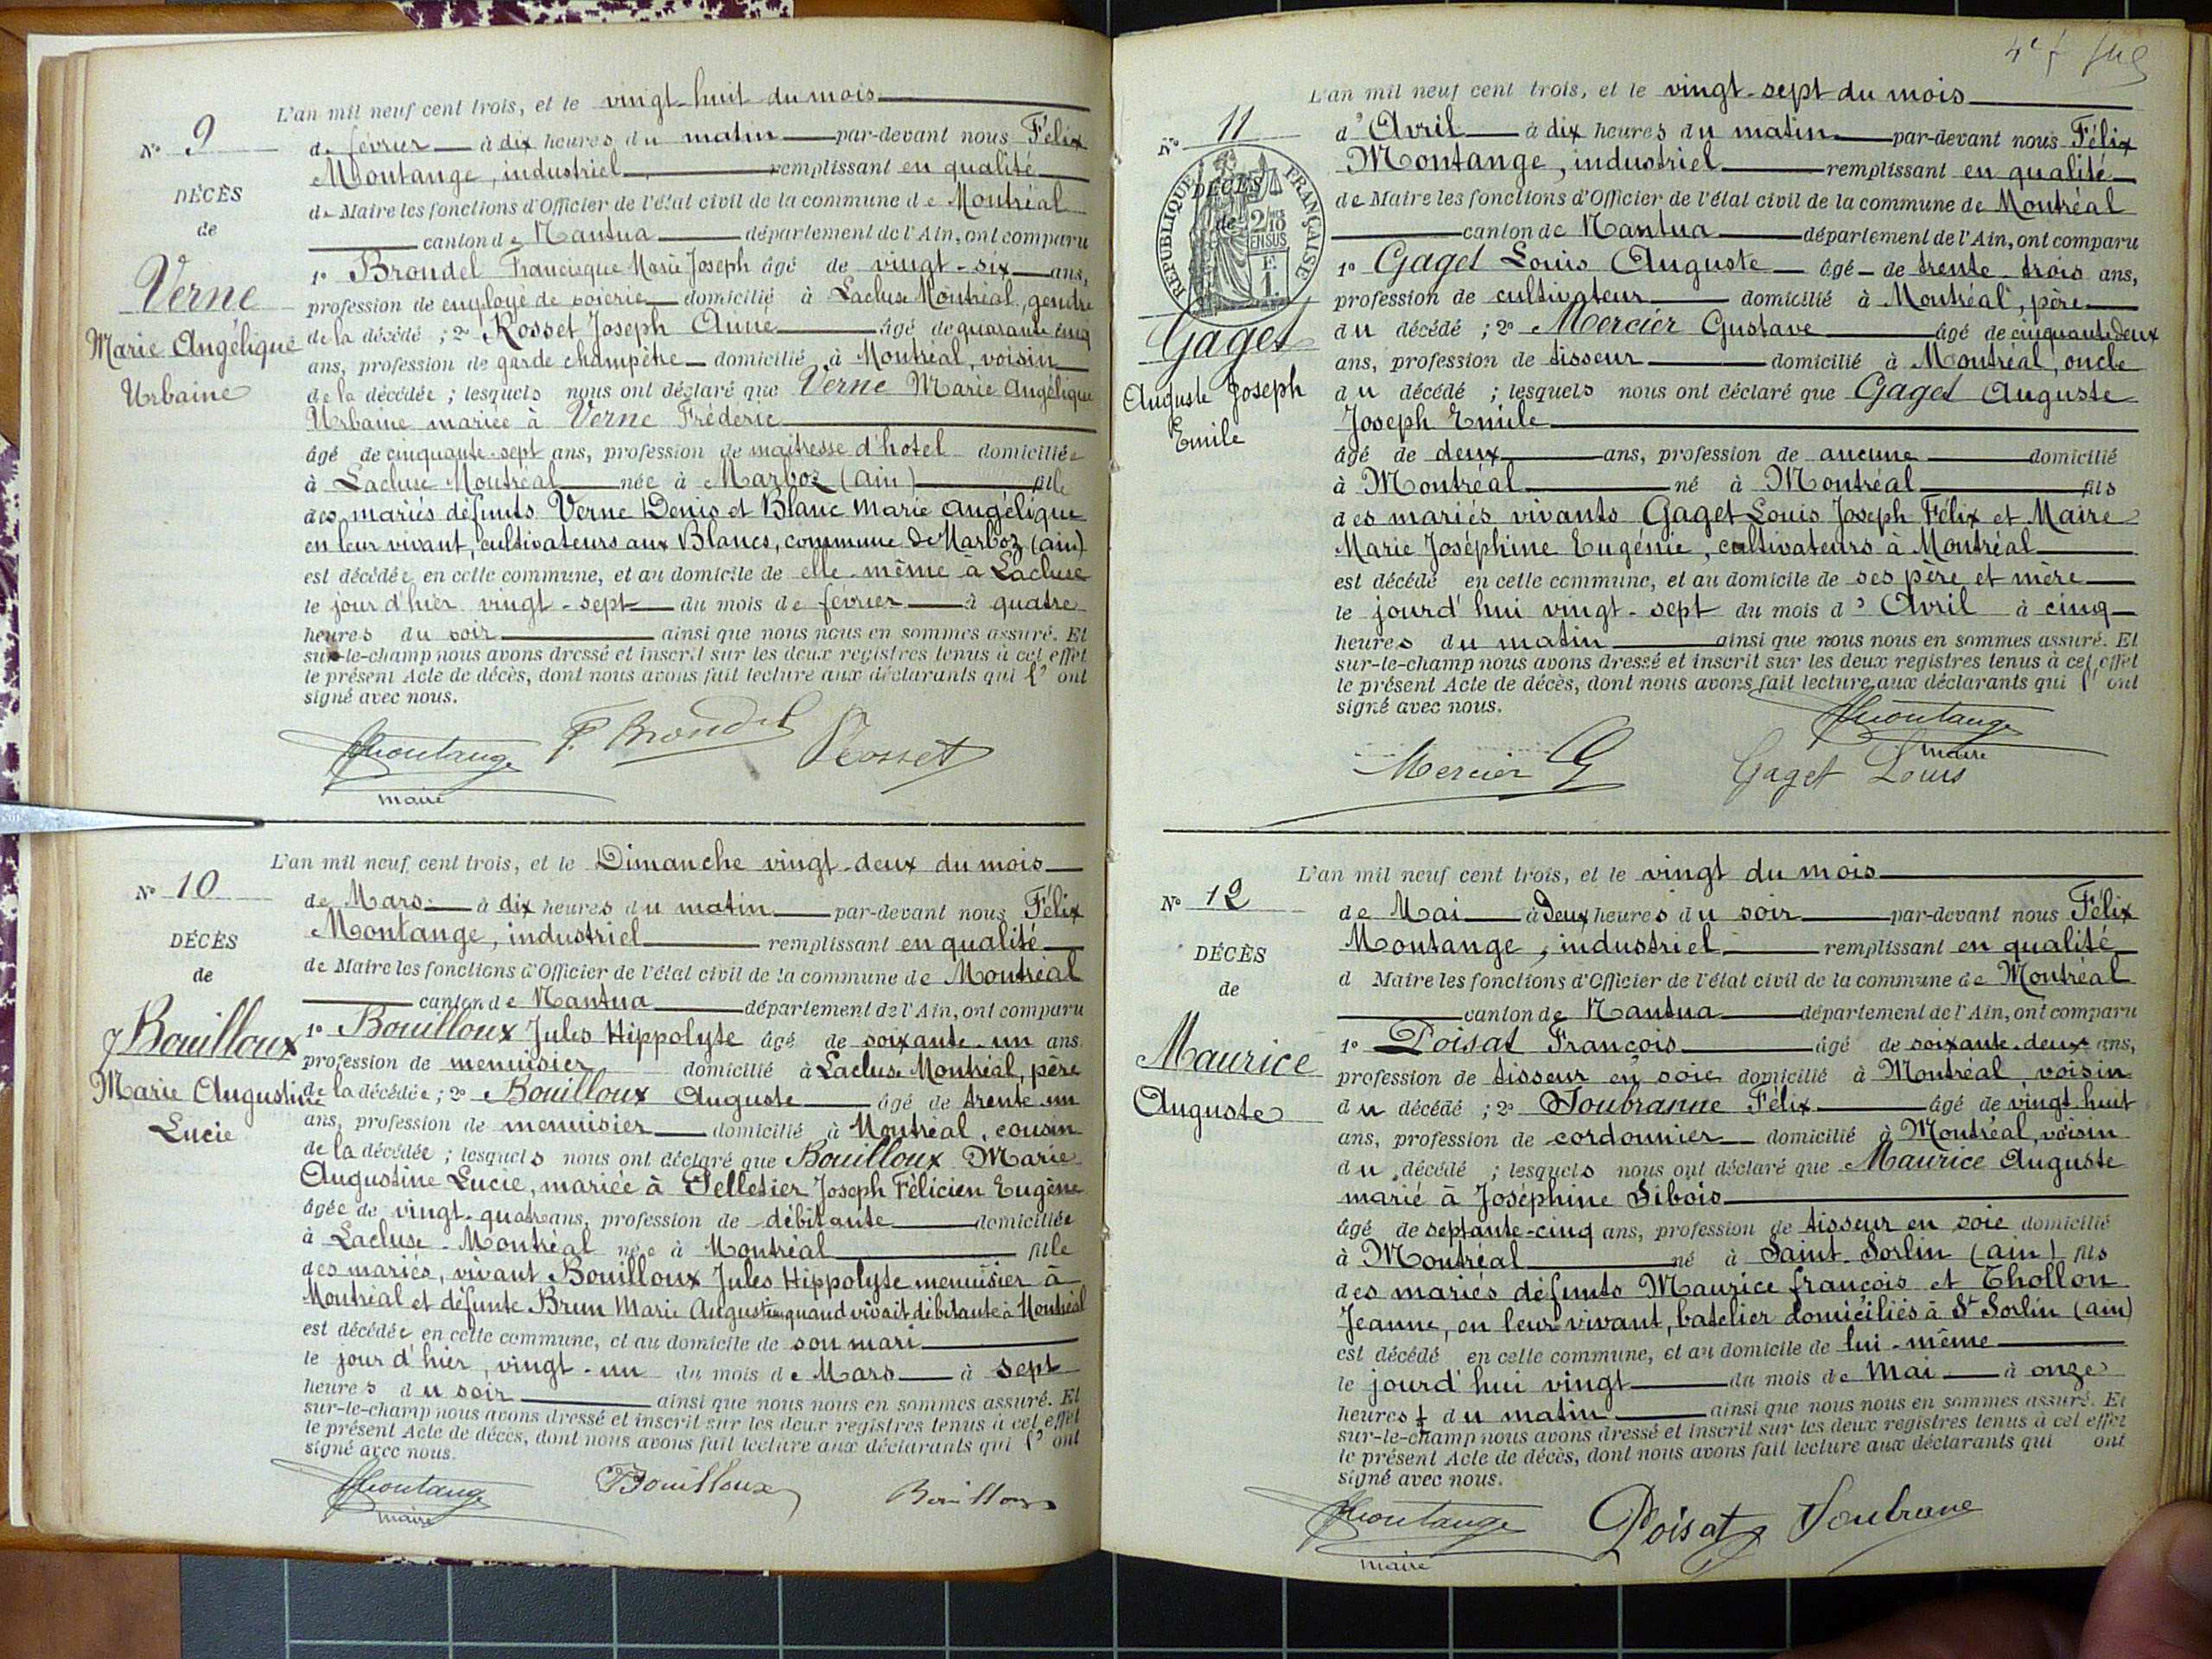 L'an mil neuf cent trois, et le vingt-huit du mois
N° 9
de février à dix heures du matin par-devant nous Félix
Montange, industriel remplissant en qualité
DÉCÈS
de Maire les fonctions d'Officier de l'état civil de la commune de Montréal
de
canton de Nantua département de l'Ain, ont comparu
Verne
1° Brondel Francisque Marie Joseph âgé de vingt-six ans,
profession de employé de soierie domicilié à Lacluse Montréal, gendre
Marie Angélique
de la décédé ; 2° Rosset Joseph Aimé âgé de quarante cinq
ans, profession de garde champêtre domicilié à Montréal, voisin
Urbaine
de la décédée ; lesquels nous ont déclaré que Verne Marie Angélique
Urbaine mariée à Verne Frédéric
âgé de cinquante-sept ans, profession de maîtresse d'hotel domiciliée
à Lacluse Montréal née à Marboz (ain) fille
des mariés défunts Verne Denis et Blanc Marie Angélique
en leur vivant, cultivateurs aux Blancs, commune de Marboz (ain)
est décédée en cette commune, et au domicile de elle-même à Lacluse
le jour d'hier vingt-sept du mois de février à quatre
heures du soir ainsi que nous nous en sommes assuré. Et
sur-le-champ nous avons dressé et inscrit sur les deux registres tenus à cet effet
le présent Acte de décès, dont nous avons fait lecture aux déclarants qui l' ont
signé avec nous.
Montange F. Brondel Rosset
maire
L'an mil neuf cent trois, et le Dimanche vingt-deux du mois
N° 10
de Mars à dix heures du matin par-devant nous Félix
Montange, industriel remplissant en qualité
DÉCÈS
de Maire les fonctions d'Officier de l'état civil de la commune de Montréal
de
canton de Nantua département de l'Ain, ont comparu
Bouilloux
1° Bouilloux Jules Hippolyte âgé de soixante-un ans
profession de menuisier domicilié à Lacluse Montréal, père
Marie Augustine
de la décédée ; 2° Bouilloux Auguste âgé de trente un
Lucie
ans, profession de menuisier domicilié à Montréal, cousin
de la décédée ; lesquels nous ont déclaré que Bouilloux Marie
Augustine Lucie, mariée à Pelletier Joseph Félicien Eugène
âgée de vingt-quatre ans, profession de débitante domiciliée
à Lacluse-Montréal née à Montréal fille
des mariés, vivant Bouilloux Jules Hippolyte menuisier à
Montréal et défunte Brun Marie Augustine quand vivait débitante à Montréal
est décédée en cette commune, et au domicile de son mari
le jour d'hier, vingt-un du mois de Mars à sept
heures du soir ainsi que nous nous en sommes assuré. Et
sur-le-champ nous avons dressé et inscrit sur les deux registres tenus à cet effet
le présent Acte de décès, dont nous avons fait lecture aux déclarants qui l' ont
signé avec nous.
Montange Bouilloux Bouilloux
maire
L'an mil neuf cent trois, et le vingt-sept du mois
N° 11
d'Avril à dix heures du matin par-devant nous Félix
Montange, industriel remplissant en qualité
DÉCÈS
de
RÉPUBLIQUE FRANÇAISE
2/10 EN SUS
de Maire les fonctions d'Officier de l'état civil de la commune de Montréal
canton de Nantua département de l'Ain, ont comparu
1° Gaget Louis Auguste âgé de trente-trois ans,
profession de cultivateur domicilié à Montréal, père
Gaget
du décédé ; 2° Mercier Gustave âgé de cinquante deux
ans, profession de tisseur domicilié à Montréal, oncle
Auguste Joseph
du décédé ; lesquels nous ont déclaré que Gaget Auguste
Emile
Joseph Emile
âgé de deux ans, profession de aucune domicilié
à Montréal né à Montréal fils
des mariés vivants Gaget Louis Joseph Félix et Maire
Marie Joséphine Eugénie, cultivateurs à Montréal
est décédé en cette commune, et au domicile de ses père et mère
le jourd'hui vingt-sept du mois d'Avril à cinq
heures du matin ainsi que nous nous en sommes assuré. Et
sur-le-champ nous avons dressé et inscrit sur les deux registres tenus à cet effet
le présent Acte de décès, dont nous avons fait lecture aux déclarants qui l' ont
signé avec nous.
Montange
maire
Mercier G Gaget Louis
L'an mil neuf cent trois, et le vingt du mois
N° 12
de Mai à Deux heures du soir par-devant nous Félix
Montange, industriel remplissant en qualité
DÉCÈS
d Maire les fonctions d'Officier de l'état civil de la commune de Montréal
de
canton de Nantua département de l'Ain, ont comparu
Maurice
1° Poisat François âgé de soixante-deux ans,
profession de tisseur en soie domicilié à Montréal voisin
Auguste
du décédé ; 2° Soubranne Félix âgé de vingt-huit
ans, profession de cordonnier domicilié à Montréal, voisin
du décédé ; lesquels nous ont déclaré que Maurice Auguste
marié à Joséphine Sibois
âgé de septante-cinq ans, profession de tisseur en soie domicilié
à Montréal né à Saint-Sorlin (ain) fils
des mariés défunts Maurice françois et Thollon
Jeanne, en leur vivant, batelier domiciliés à St Sorlin (ain)
est décédé en cette commune, et au domicile de lui-même
le jourd'hui vingt du mois de Mai à onze
heures ½ du matin ainsi que nous nous en sommes assuré. Et
sur-le-champ nous avons dressé et inscrit sur les deux registres tenus à cet effet
le présent Acte de décès, dont nous avons fait lecture aux déclarants qui ont
signé avec nous.
Montange Poisat Soubrane
maire